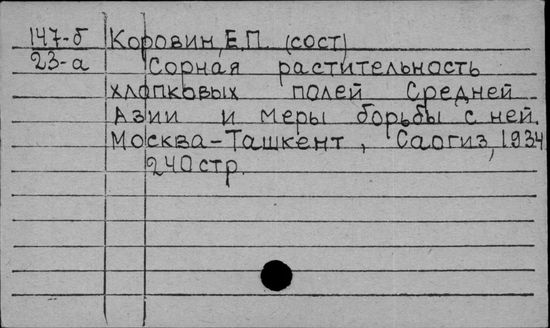 147-б Коровин, Е.П. (сост)
23-а Сорная растительность
хлопковых полей Средней
Азии и меры борьбы с ней.
Москва-Ташкент, Саогиз, 1934
240 стр.